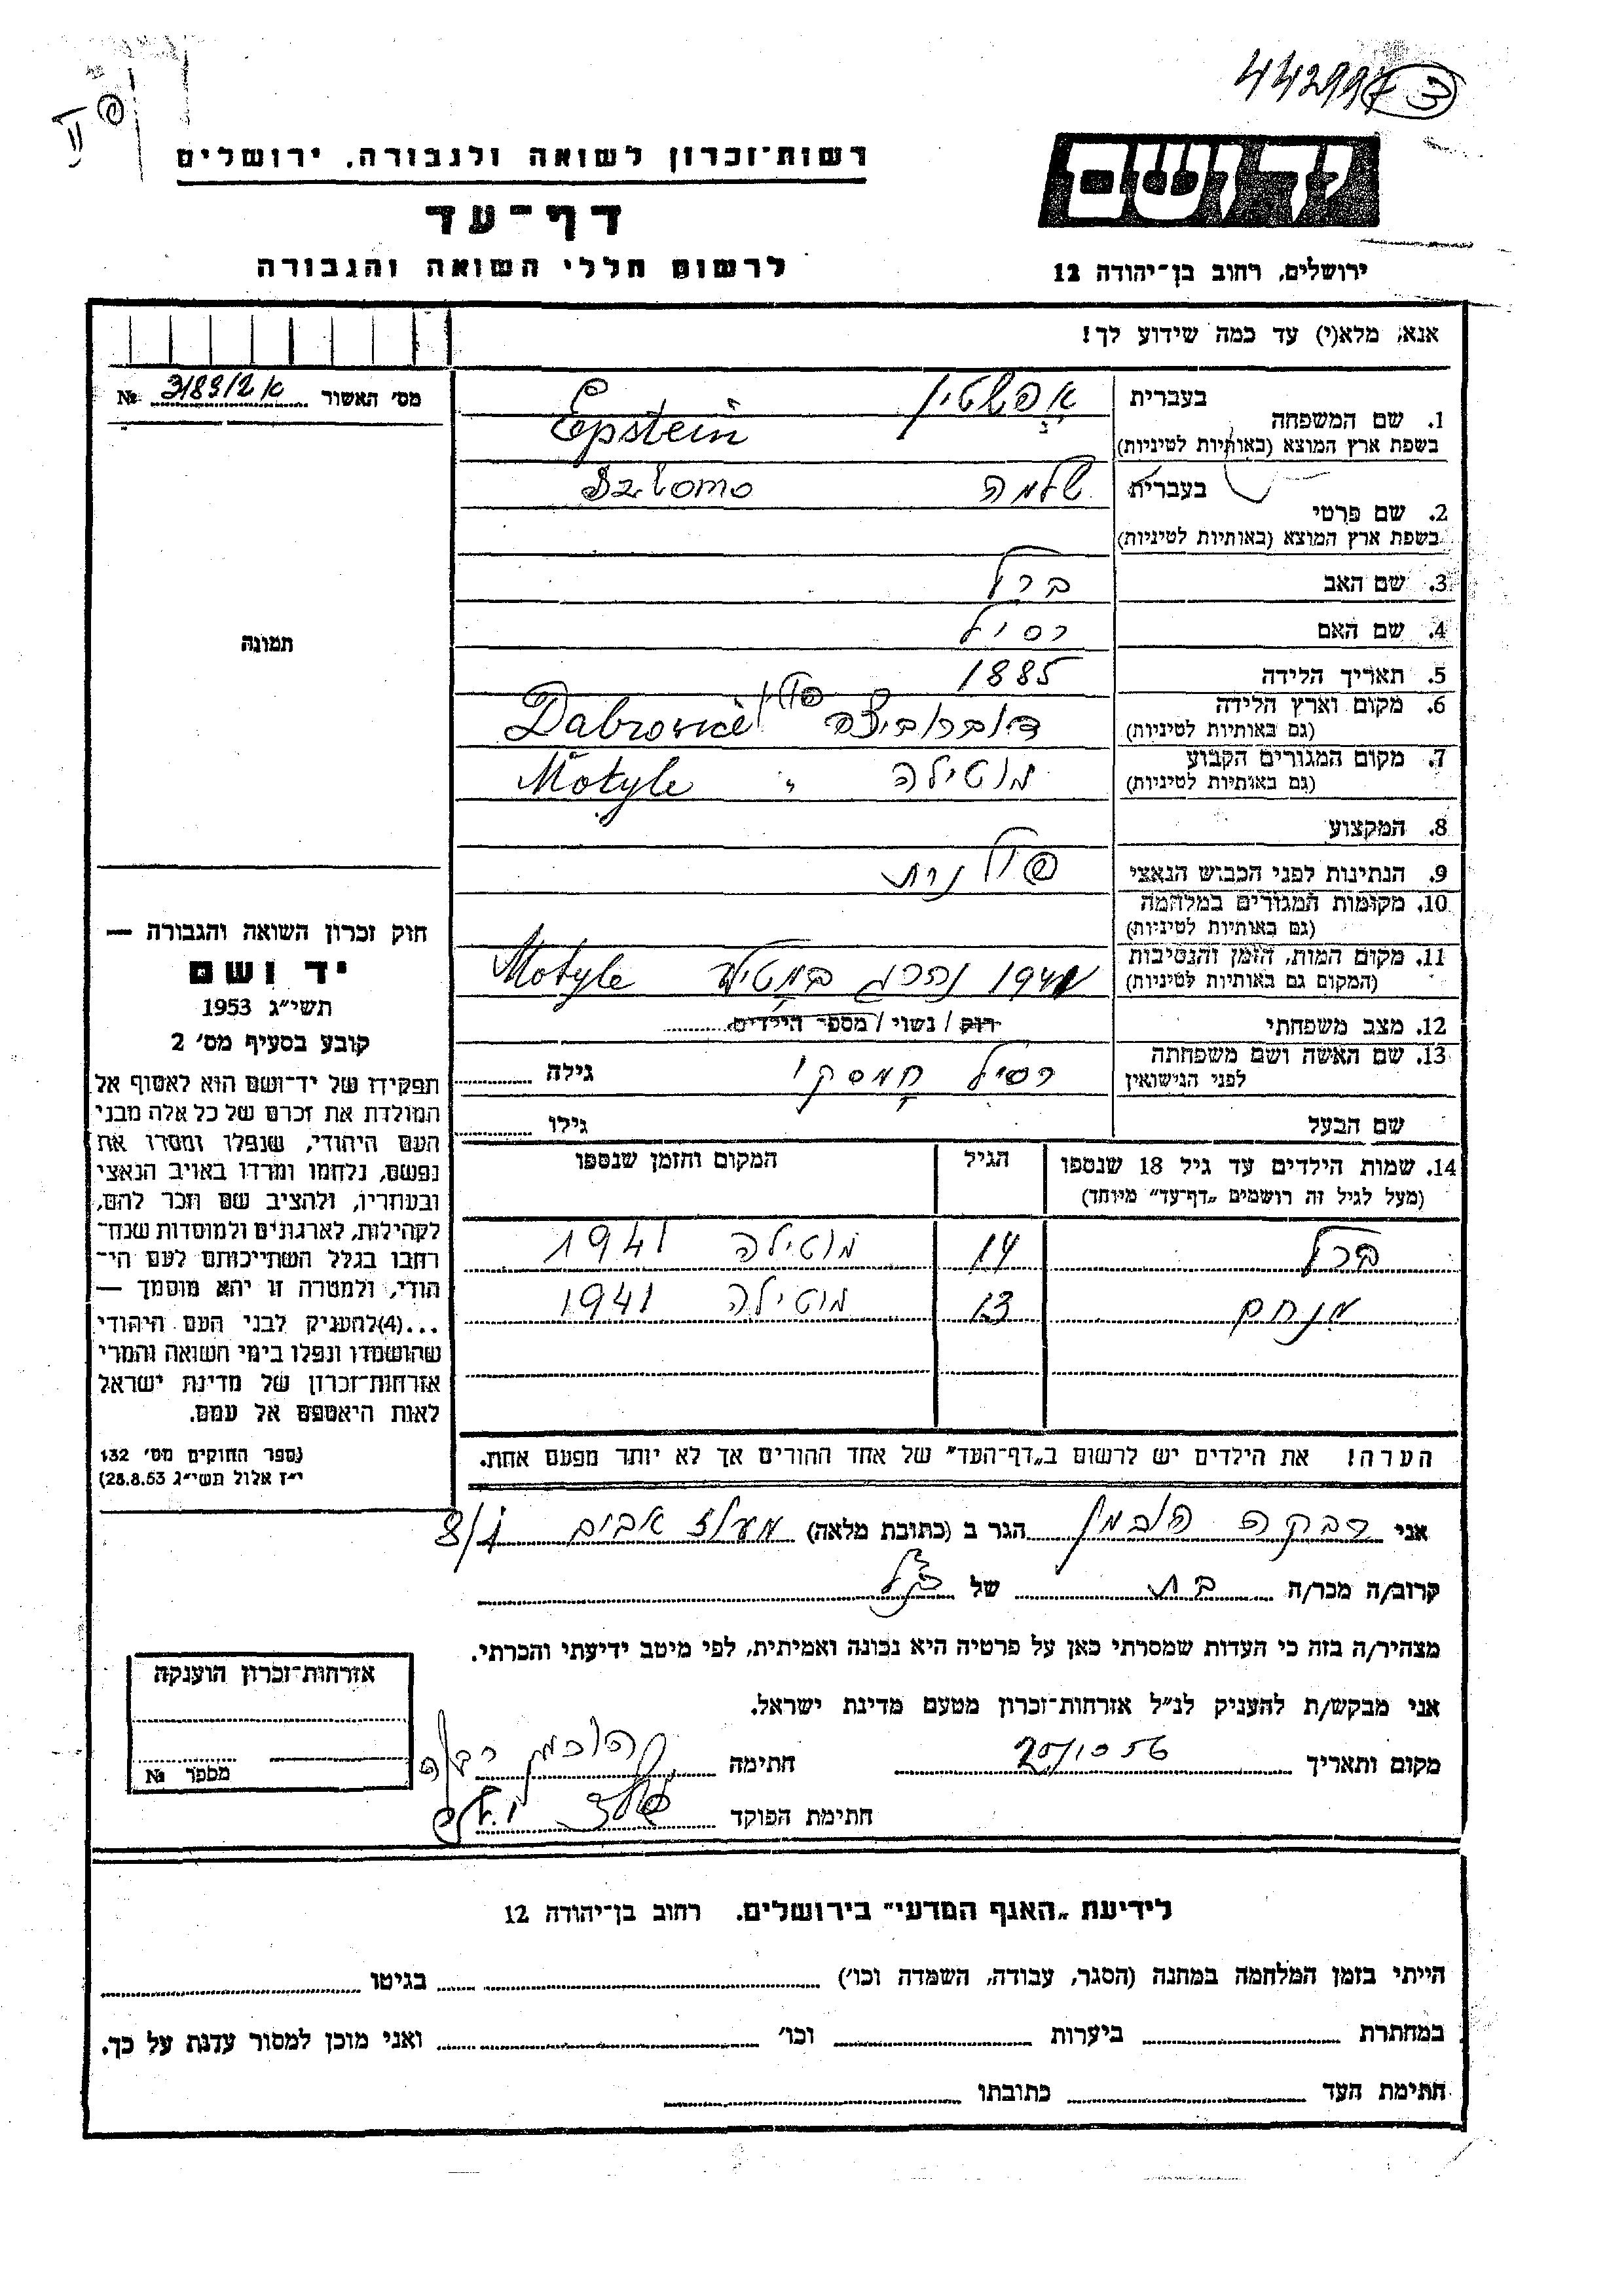 442997 3
פ
רשות־זכרון לשואה ולגבורה, ירושלים
יד ושם
דף־עד
לרשום חללי השואה והגבורה
ירושלים, רחוב בן־יהודה 12
אנא, מלא(י) עד כמה שידוע לך!
מס׳ האשור № 3183/2א
1. שם המשפחה בעברית אפשטין
בשפת ארץ המוצא (באותיות לטיניות) Epstein
2. שם פרטי בעברית שלמה Szlomo
בשפת ארץ המוצא (באותיות לטיניות)
3. שם האב ברל
4. שם האם רסיל
תמונה
5. תאריך הלידה 1885
6. מקום וארץ הלידה דוברוביצה פולין Dabrovice
(גם באותיות לטיניות)
7. מקום המגורים הקבוע מוטילה " Motyle
(גם באותיות לטיניות)
8. המקצוע
9. הנתינות לפני הכבוש הנאצי פולנית
10. מקומות המגורים במלחמה
(גם באותיות לטיניות)
11. מקום המות, הזמן והנסיבות נהרג במטילה Motyle
(המקום גם באותיות לטיניות)
12. מצב משפחתי רוק / נשוי / מספר הילדים
13. שם האשה ושם משפחתה רסיל חמסקי גילה
לפני הנישואין
שם הבעל גילו
14. שמות הילדים עד גיל 18 שנספו הגיל המקום והזמן שנספו
(מעל לגיל זה רושמים „דף־עד” מיוחד)
ברל 14 מוטילה 1941
מנחם 13 מוטילה 1941
הערה! את הילדים יש לרשום ב„דף־העד” של אחד ההורים אך לא יותר מפעם אחת.
חוק זכרון השואה והגבורה —
יד ושם
תשי״ג 1953
קובע בסעיף מס׳ 2
תפקידו של יד־ושם הוא לאסוף אל
המולדת את זכרם של כל אלה מבני
העם היהודי, שנפלו ומסרו את
נפשם, נלחמו ומרדו באויב הנאצי
ובעוזריו, ולהציב שם וזכר להם,
לקהילות, לארגונים ולמוסדות שנח־
רבו בגלל השתייכותם לעם הי־
הודי, ולמטרה זו יהא מוסמך —
...(4)להעניק לבני העם היהודי
שהושמדו ונפלו בימי השואה והמרי
אזרחות־זכרון של מדינת ישראל
לאות היאספם אל עמם.
(ספר החוקים מס׳ 132
י״ז אלול תשי״ג 28.8.53)
אני רבקה הוכמן הגר ב (כתובת מלאה) מעלז אביב 8/1
קרוב/ה מכר/ה בת של
מצהיר/ה בזה כי העדות שמסרתי כאן על פרטיה היא נכונה ואמיתית, לפי מיטב ידיעתי והכרתי.
אני מבקש/ת להעניק לנ״ל אזרחות־זכרון מטעם מדינת ישראל.
מקום ותאריך 25/10 56 חתימה הוכמן רבקה
חתימת הפוקד
אזרחות־זכרון הוענקה
מספר №
לידיעת „האגף המדעי” בירושלים. רחוב בן־יהודה 12
הייתי בזמן המלחמה במחנה (הסגר, עבודה, השמדה וכו׳) בגיטו
במחתרת ביערות וכו׳ ואני מוכן למסור עדות על כך.
חתימת העד כתובתו